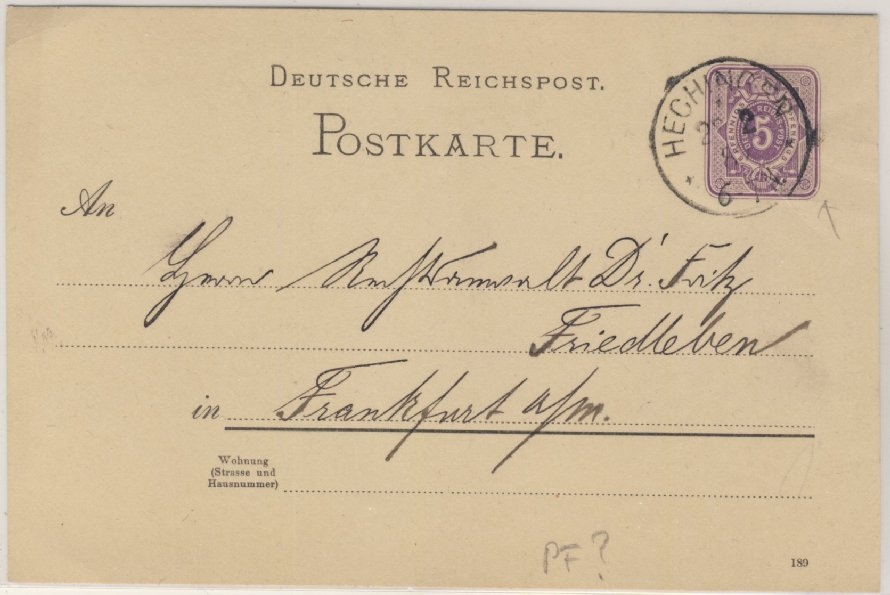 DEUTSCHE REICHSPOST.
POSTKARTE.
HECHINGEN
2
5
An
Herrn Rechtsanwalt Dr. Fritz
Friedleben
in Frankfurt a/m.
Wohnung
(Strasse und
Hausnummer)
PF?
189